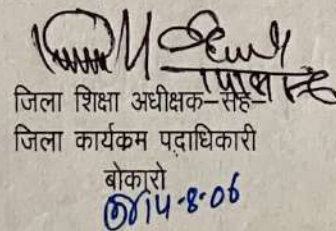 जिला शिक्षा अधीक्षक–सह–
जिला कार्यकम पदाधिकारी
बोकारो
14-8-06